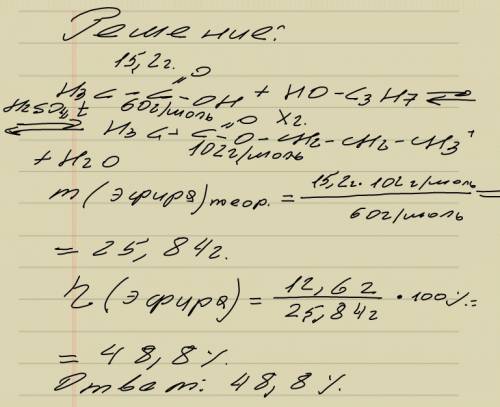 Решение:
15,2г.
H3C-C=O-OH + HO-C3H7 ⇌
H2SO4, t 60г/моль Xг.
⇌ H3C-C=O-O-CH2-CH2-CH3 +
102г/моль
+ H2O
m(эфира)теор. = 15,2г·102г/моль / 60г/моль =
= 25,84г.
η(эфира) = 12,6г / 25,84г · 100% =
= 48,8%.
Ответ: 48,8%.